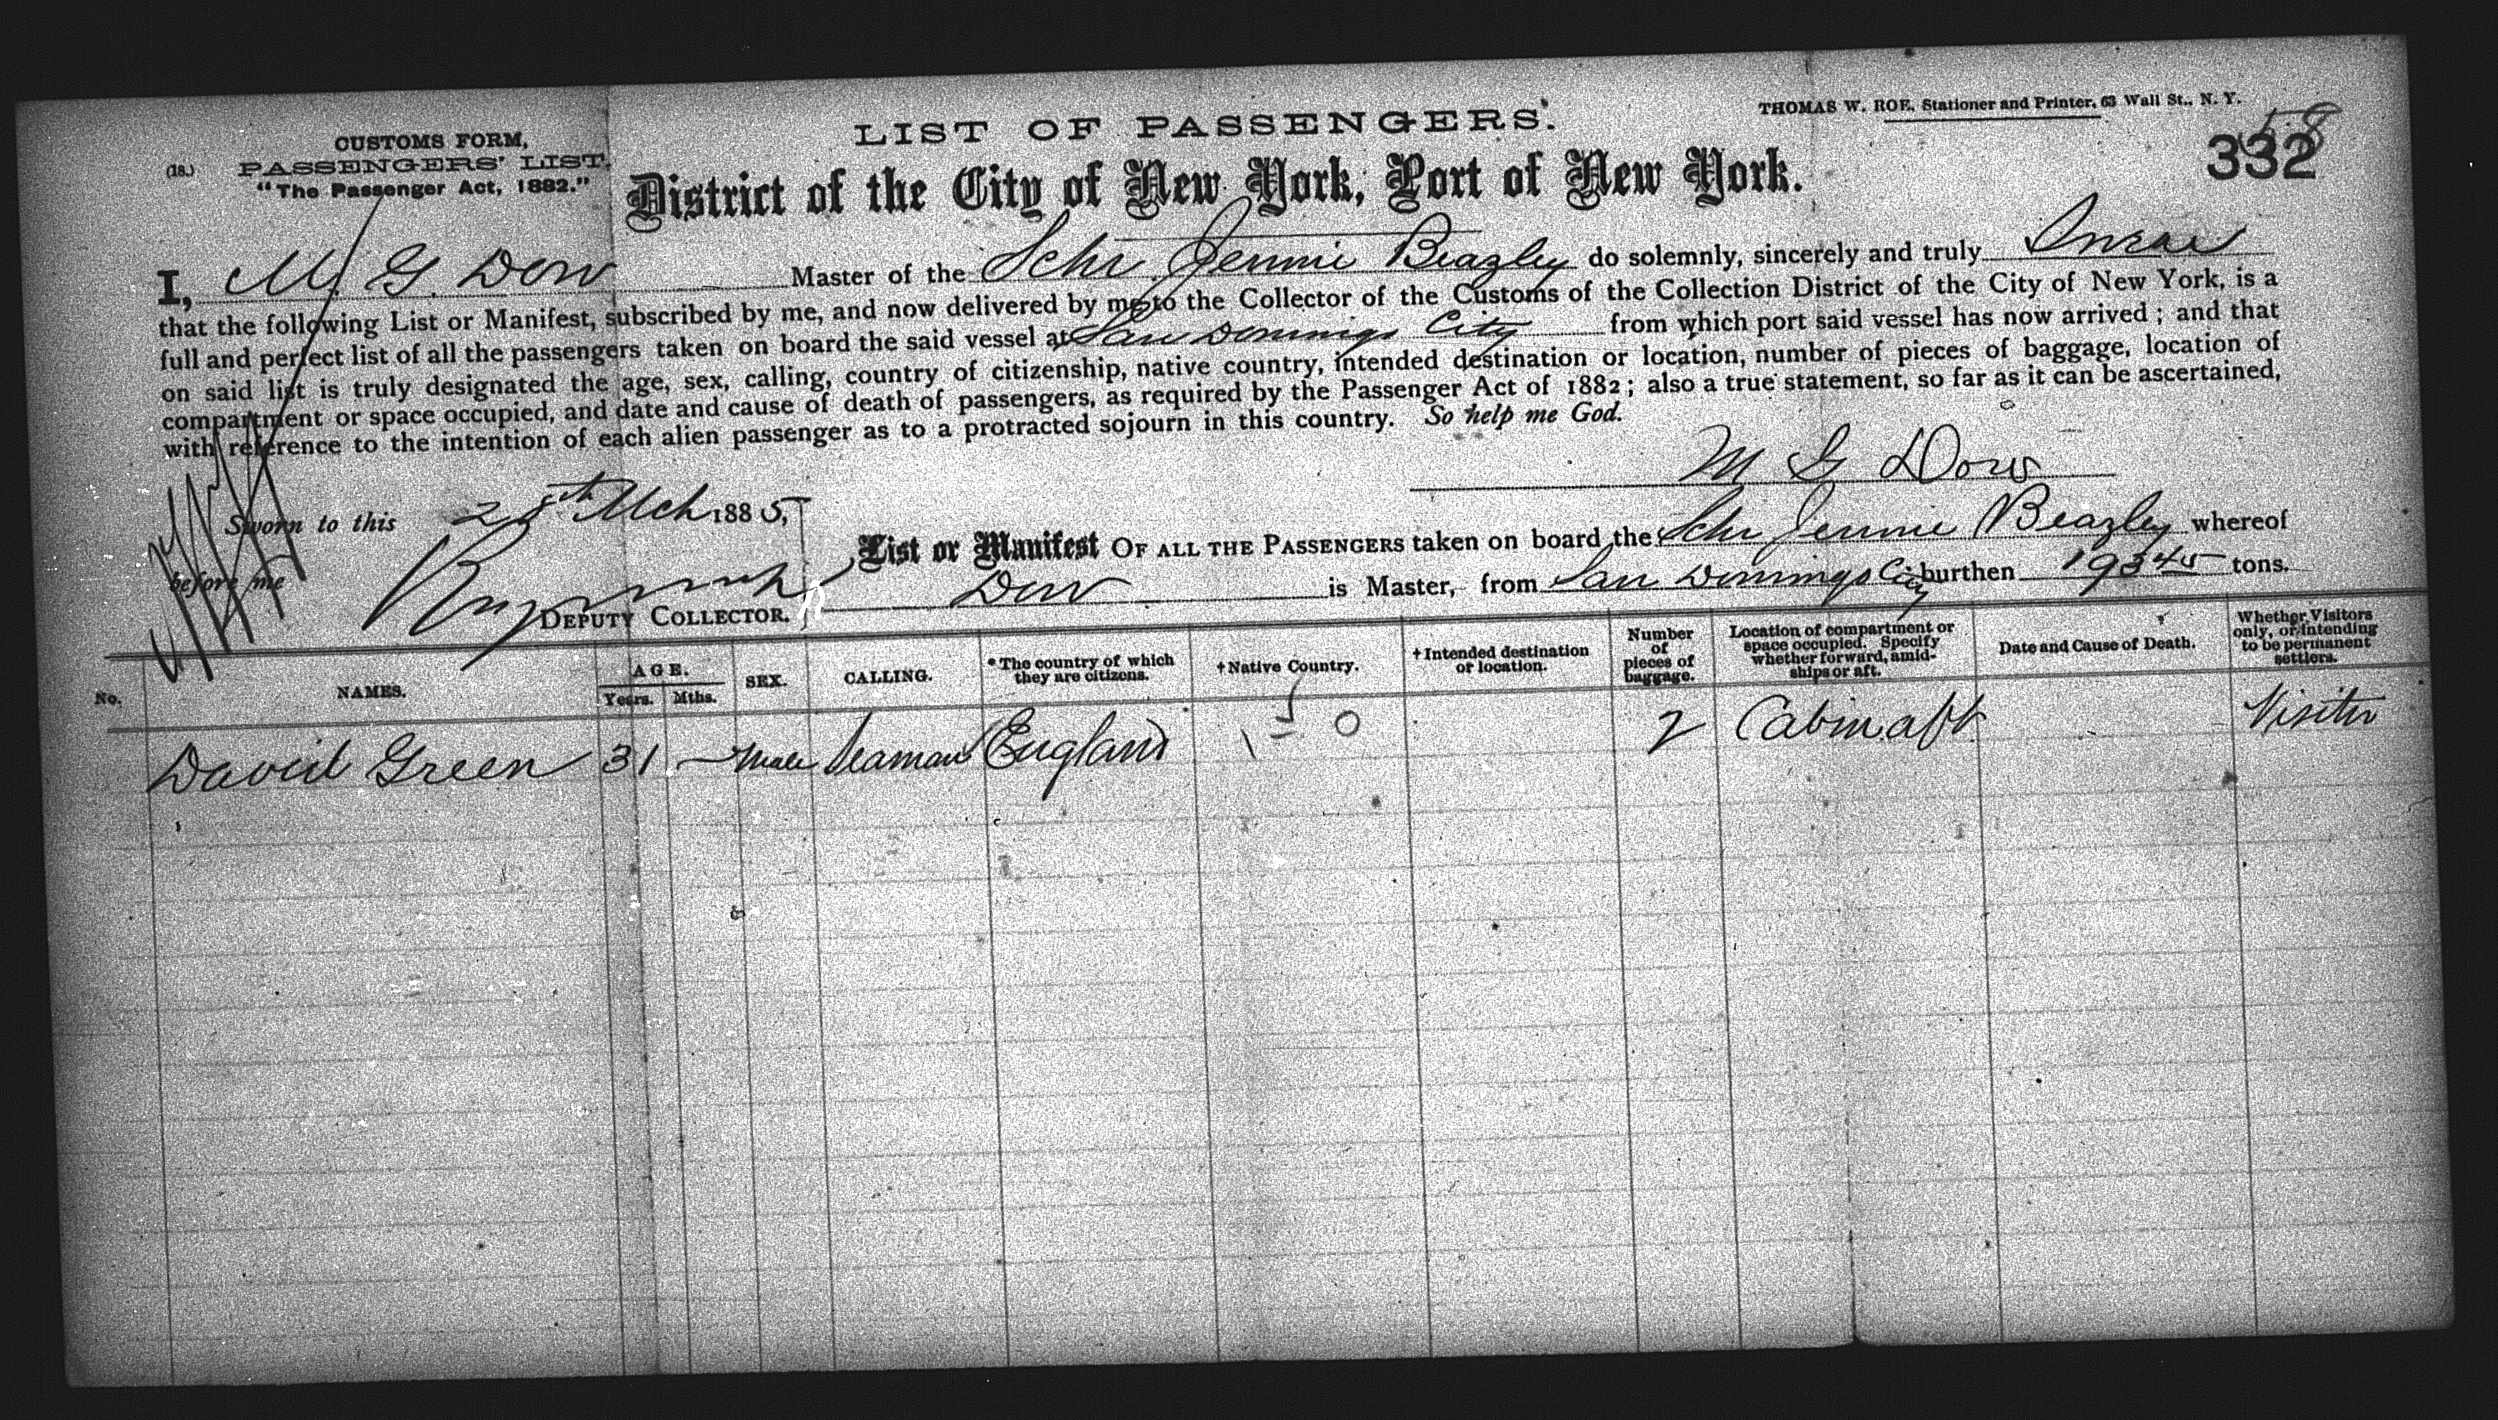 THOMAS W. ROE, Stationer and Printer, 63 Wall St., N. Y.
LIST OF PASSENGERS.
58
332
CUSTOMS FORM,
(18.) PASSENGERS' LIST.
"The Passenger Act, 1882."
District of the City of New York, Port of New York.
I, M G Dow Master of the Schr Jennie Beazley do solemnly, sincerely and truly Swear
that the following List or Manifest, subscribed by me, and now delivered by me to the Collector of the Customs of the Collection District of the City of New York, is a
full and perfect list of all the passengers taken on board the said vessel at San Domingo City from which port said vessel has now arrived; and that
on said list is truly designated the age, sex, calling, country of citizenship, native country, intended destination or location, number of pieces of baggage, location of
compartment or space occupied, and date and cause of death of passengers, as required by the Passenger Act of 1882; also a true statement, so far as it can be ascertained,
with reference to the intention of each alien passenger as to a protracted sojourn in this country. So help me God.
M G Dow
Sworn to this 28th Mch 1885,
before me
DEPUTY COLLECTOR.
List or Manifest OF ALL THE PASSENGERS taken on board the Schr Jennie Beazley whereof
Dow is Master, from San Domingo City burthen 193 45 tons.
No. NAMES. AGE. Years. Mths. SEX. CALLING. *The country of which they are citizens. †Native Country. †Intended destination or location. Number of pieces of baggage. Location of compartment or space occupied. Specify whether forward, amidships or aft. Date and Cause of Death. Whether Visitors only, or intending to be permanent settlers.
David Green 31 — Male Seaman England 1 - 0 2 Cabin aft Visitor